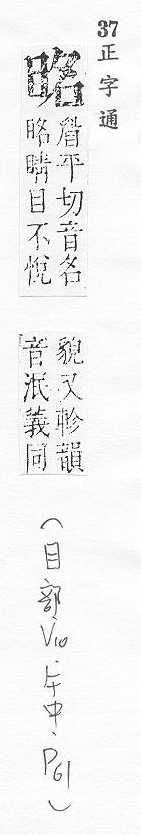 37正字通
眳
睂平切音名
眳睛目不悅
貌又軫韻
音泯義同
(目部、V10、午中、P61)